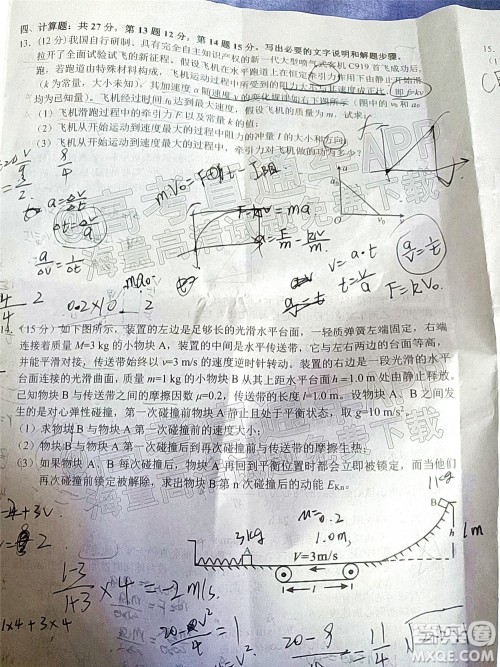 四、计算题：共27分，第13题12分，第14题15分。写出必要的文字说明和解题步骤。
13.（12分）我国自行研制、具有完全自主知识产权的新一代大型喷气式客机C919首飞成功后，
拉开了全面试验试飞的新征程。假设飞机在水平跑道上在恒定牵引力作用下由静止滑
跑，若跑道由特殊材料构成，飞机运动过程中所受到的阻力大小与其速度成正比，即f=kv
（k为常量，大小未知），其加速度a随速度v的变化规律如右下图所示（图中的v₀和a₀
均为已知量）。飞机经过时间t₀达到最大速度，假设飞机的质量为m。试求：
（1）飞机滑跑过程中的牵引力F以及常量k的大小；
（2）飞机从开始运动到速度最大的过程中阻力的冲量I的大小和方向；
（3）飞机从开始运动到速度最大的过程中，牵引力对飞机做的功为多少？
a=Δv/t
Δt=Δv/a
a/Δv=1/Δt
F-kv=ma
a=F/m-kv/m
v=a·t
t=v/a
a/v=t
F=kV₀
14.（15分）如下图所示，装置的左边是足够长的光滑水平台面，一轻质弹簧左端固定，右端
连接着质量M=3 kg的小物块A，装置的中间是水平传送带，它与左右两边的台面等高，
并能平滑对接，传送带始终以v=3 m/s的速度逆时针转动。装置的右边是一段光滑的水
平台面连接的光滑曲面，质量m=1 kg的小物块B从其上距水平台面h=1.0 m处由静止释放。
已知物块B与传送带之间的摩擦因数μ=0.2，传送带的长度l=1.0 m。设物块A、B之间发
生的是对心弹性碰撞，第一次碰撞前物块A静止且处于平衡状态，取g=10 m/s²。
（1）求物块B与物块A第一次碰撞前的速度大小；
（2）物块B与物块A第一次碰撞后到再次碰撞前与传送带的摩擦生热；
（3）如果物块A、B每次碰撞后，物块A再回到平衡位置时都会立即被锁定，而当他们
再次碰撞前锁定被解除，求出物块B第n次碰撞后的动能EKn。
1kg
3kg
μ=0.2
1.0m
B
h
1m
v=3m/s
l
1-3/1+3×4=-2m/s.
1×4+3×4